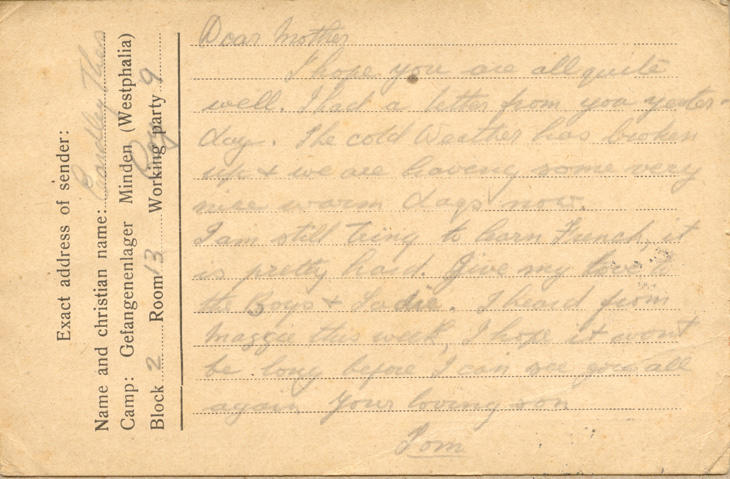 Exact address of sender:
Name and christian name: Thos
Camp: Gefangenenlager Minden (Westphalia)
Block 2 Room 13 Working party 9
Dear Mother
I hope you are all quite
well. I had a letter from you yester-
day. The cold Weather has broken
up & we are having some very
nice warm days now.
I am still tring to learn French, it
is pretty hard. Give my love to
the Boys & Sadie. I heard from
Maggie this week, I hope it wont
be long before I can see you all
again Your loving son
Tom